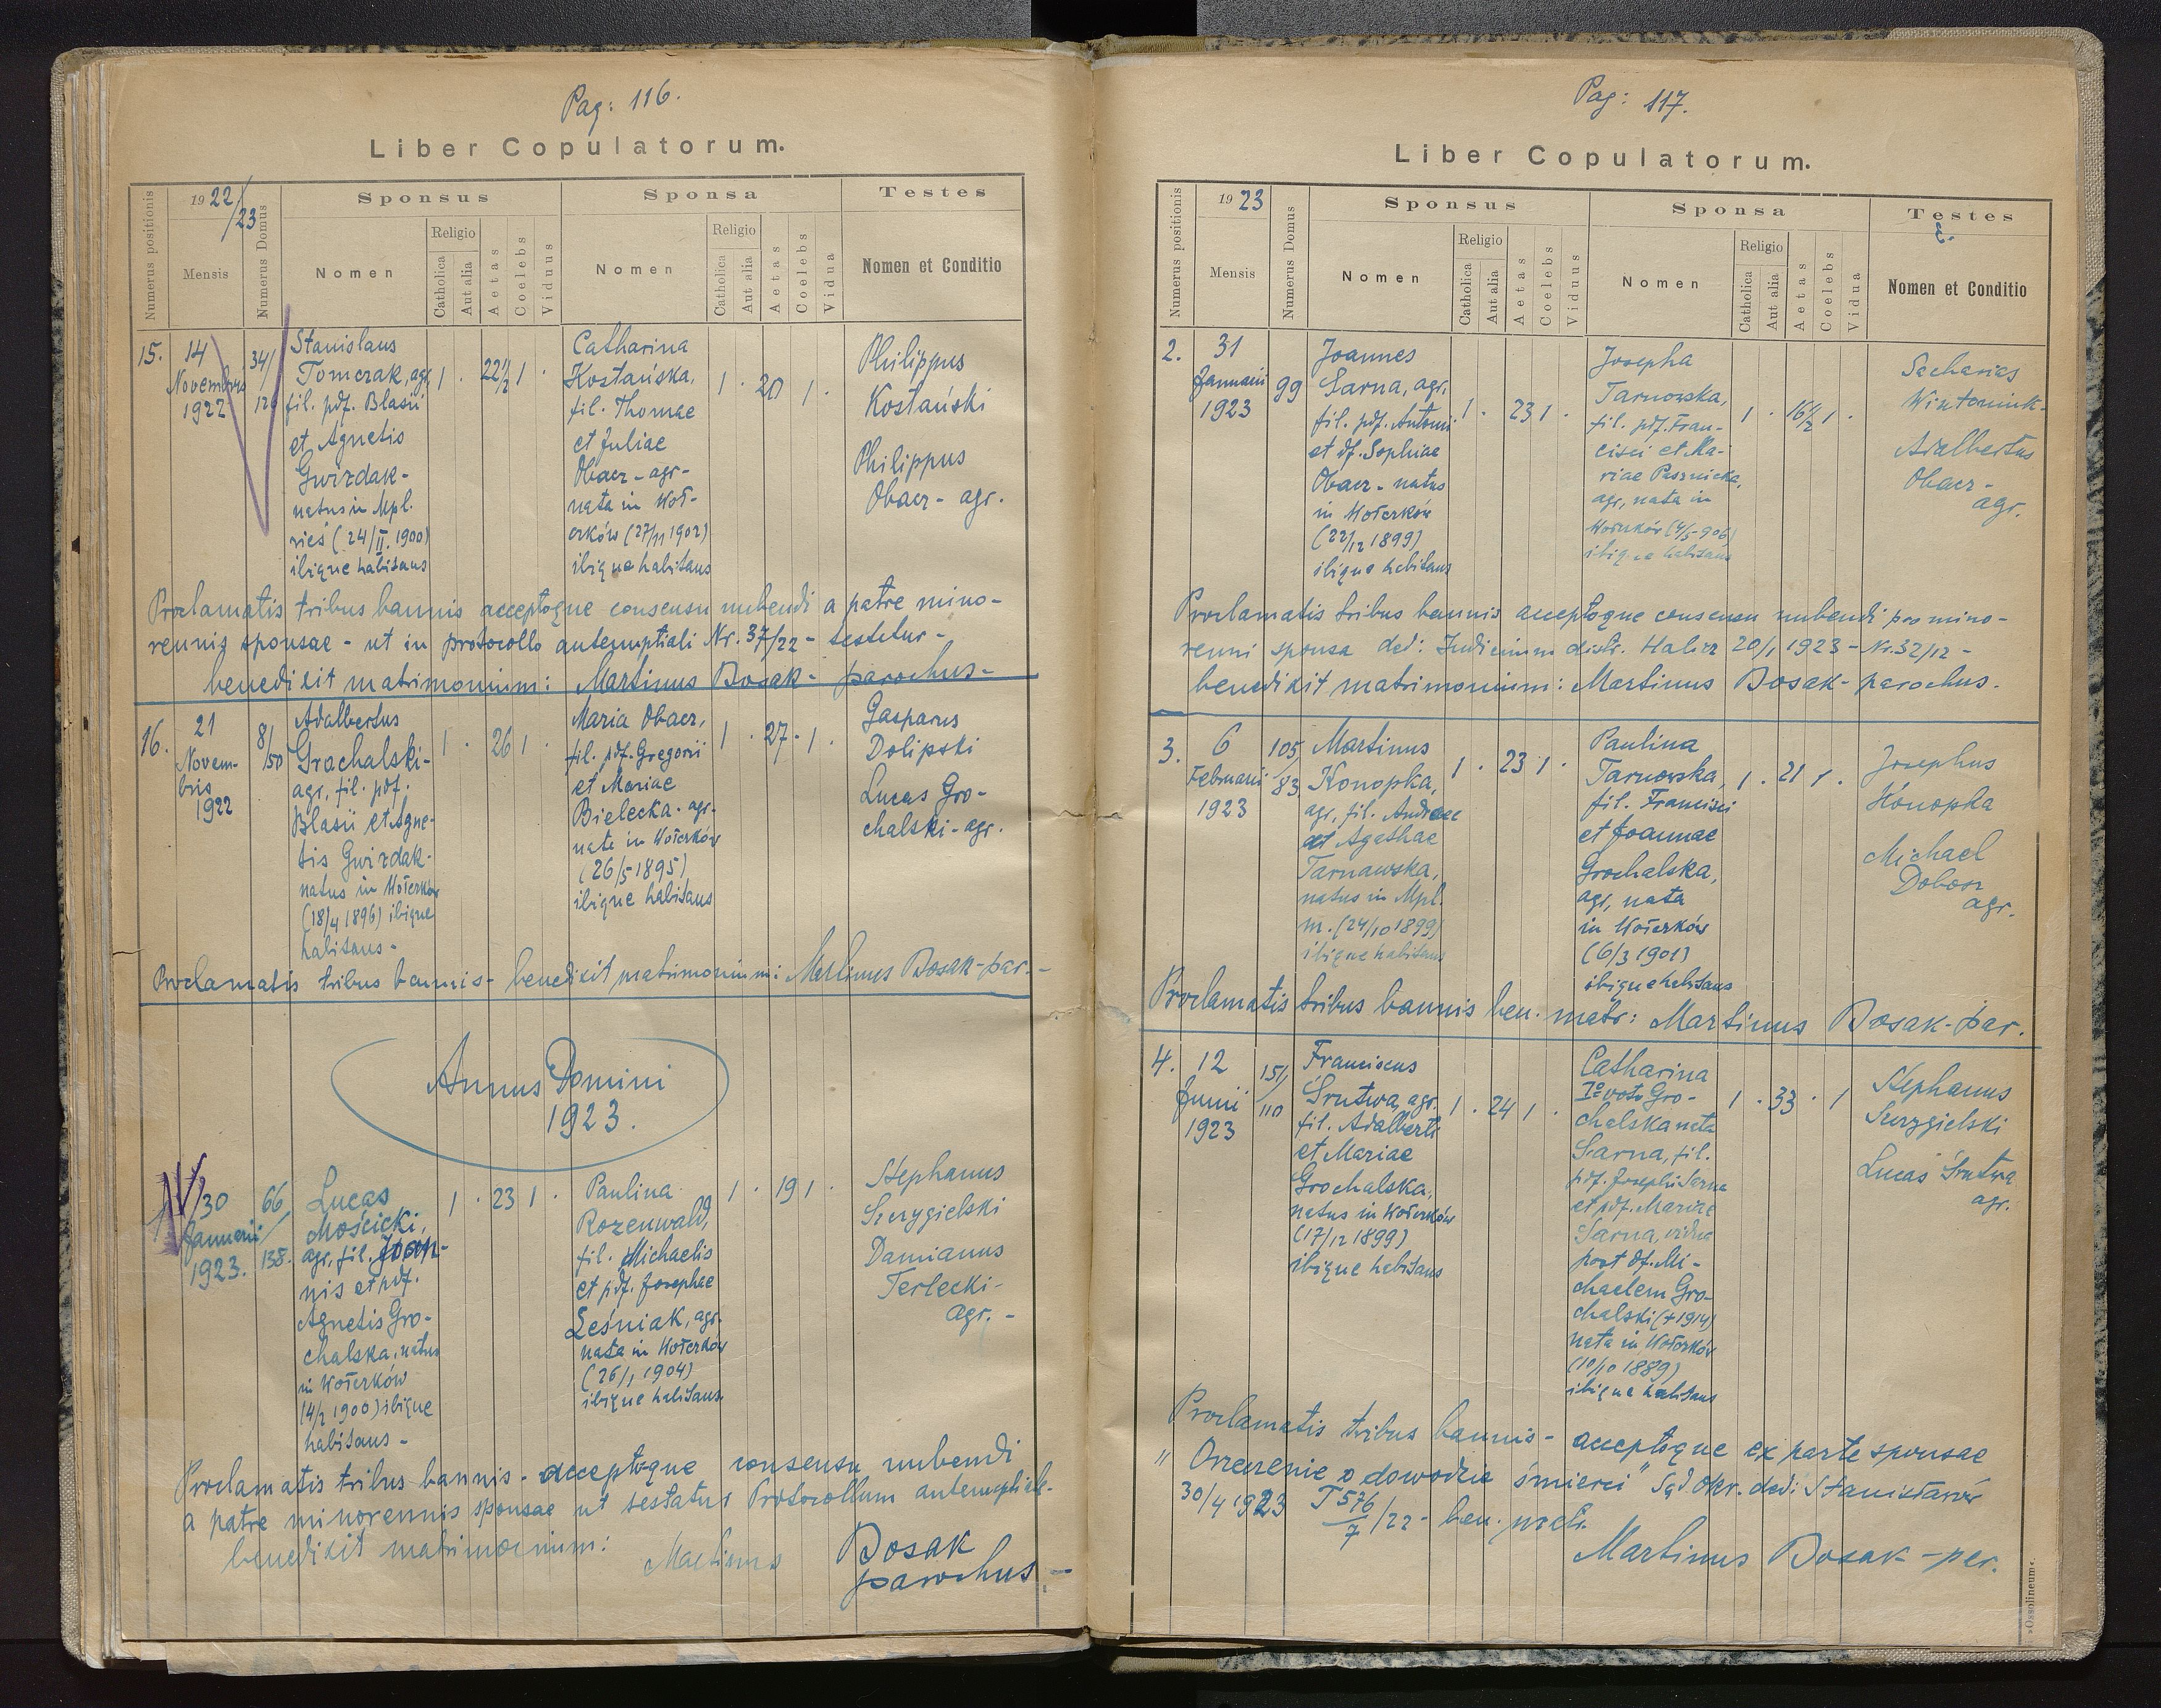 Pag: 116.
Liber Copulatorum.
Numerus positionis
1922/23
Mensis
Numerus Domus
Sponsus
Nomen
Religio
Catholica
Aut alia
Aetas
Coelebs
Viduus
Sponsa
Nomen
Religio
Catholica
Aut alia
Aetas
Coelebs
Vidua
Testes
Nomen et Conditio
15.
14
Novembris
1922
34/
126
Stanislaus
Tomczak, agr,
fil. pdf. Blasii
et Agnetis
Gwizdak-
natus in Mpl.
ries (24/II. 1900)
ibique habitans
1 . 22 1/2 1 .
Catharina
Kostańska,
fil. Thomae
et Juliae
Obacz - agr-
nata in Woł-
czków (27/11 1902)
ibique habitans
1 . 20 1 .
Philippus
Kostański
Philippus
Obacz - agr.
Proclamatis tribus bannis acceptoque consensu nubendi a patre mino-
rennis sponsae - ut in protocollo antenuptiali Nr. 37/22 - testetur -
benedixit matrimonium: Martinus Bosak - parochus -
16.
21
Novem-
bris
1922
8/
150
Adalbertus
Grochalski-
agr, fil. pdf.
Blasii et Agne-
tis Gwizdak-
natus in Wołczków
(18/4 1896) ibique
habitans -
1 . 26 1 .
Maria Obacz,
fil. pdf. Gregorii
et Mariae
Bielecka - agr.
nata in Wołczków
(26/5 1895)
ibique habitans
1 . 27 . 1 .
Gasparus
Dolipski
Lucas Gro-
chalski - agr.
Proclamatis tribus bannis - benedixit matrimonium: Martinus Bosak - par. -
Annus Domini
1923.
30
Januarii
1923.
66/
138.
Lucas
Mościcki,
agr, fil. Joan-
nis et pdf.
Agnetis Gro-
chalska, natus
in Wołczków
(4/2 1900) ibique
habitans -
1 . 23 1 .
Paulina
Rozenwald,
fil. Michaelis
et pdf. Josephae
Leśniak, agr.
nata in Wołczków
(26/1 1904)
ibique habitans
1 . 19 1 .
Stephanus
Szczygielski
Damianus
Terlecki -
agr. -
Proclamatis tribus bannis - acceptoque consensu nubendi
a patre minorennis sponsae ut testatur Protocollum antenuptiale.
benedixit matrimonium: Martinus Bosak
parochus -
Pag: 117.
Liber Copulatorum.
Numerus positionis
1923
Mensis
Numerus Domus
Sponsus
Nomen
Religio
Catholica
Aut alia
Aetas
Coelebs
Viduus
Sponsa
Nomen
Religio
Catholica
Aut alia
Aetas
Coelebs
Vidua
Testes
Nomen et Conditio
2.
31
Januarii
1923
99
Joannes
Sarna, agr,
fil. pdf. Antonii
et df. Sophiae
Obacz - natus
in Wołczków
(22/12 1899)
ibique habitans
1 . 23 1 .
Josepha
Tarnowska,
fil. pdf. Fran-
cisci et Ma-
riae Pasznicka,
agr, nata in
Wołczków (4/5 - 906)
ibique habitans
1 . 16 1/2 1 .
Sacharias
Wintoniuk -
Adalbertus
Obacz -
agr.
Proclamatis tribus bannis acceptoque consensu nubendi pro mino-
renni sponsa ded: Iudicium distr. Halicz 20/1 1923 - Nr. 32/12 -
benedixit matrimonium: Martinus Bosak - parochus.
3.
6
Februarii
1923
105
83
Martinus
Konopka,
agr, fil. Andreae
et Agathae
Tarnawska,
natus in Mpl.
m. (24/10 1899)
ibique habitans
1 . 23 1 .
Paulina
Tarnowska,
fil. Francisci
et Joannae
Grochalska,
agr, nata
in Wołczków
(6/3 1901)
ibique habitans
1 . 21 1 .
Josephus
Konopka
Michael
Dobosz
agr.
Proclamatis tribus bannis ben. matr: Martinus Bosak - par.
4.
12
Junii
1923
151/
110
Franciscus
Srutwa, agr.
fil. Adalberti
et Mariae
Grochalska,
natus in Wołczków
(17/12 1899)
ibique habitans
1 . 24 1 .
Catharina
Iº voto Gro-
chalska nata
Sarna, fil.
pdf. Josephi Sarna
et pdf. Mariae
Sarna, vidua
post df. Mi-
chaelem Gro-
chalski (+ 1914)
nata in Wołczków
(10/10 1889)
ibique habitans
1 . 33 . 1
Stephanus
Szczygielski
Lucas Srutwa
agr.
Proclamatis tribus bannis - acceptoque ex parte sponsae
"Orzeczenie o dowodzie śmierci" Sąd okr. ded: Stanisławów
30/4 1923 T 576/7/22 - ben. matr.
Martinus Bosak - par.
»Ossolineum«.